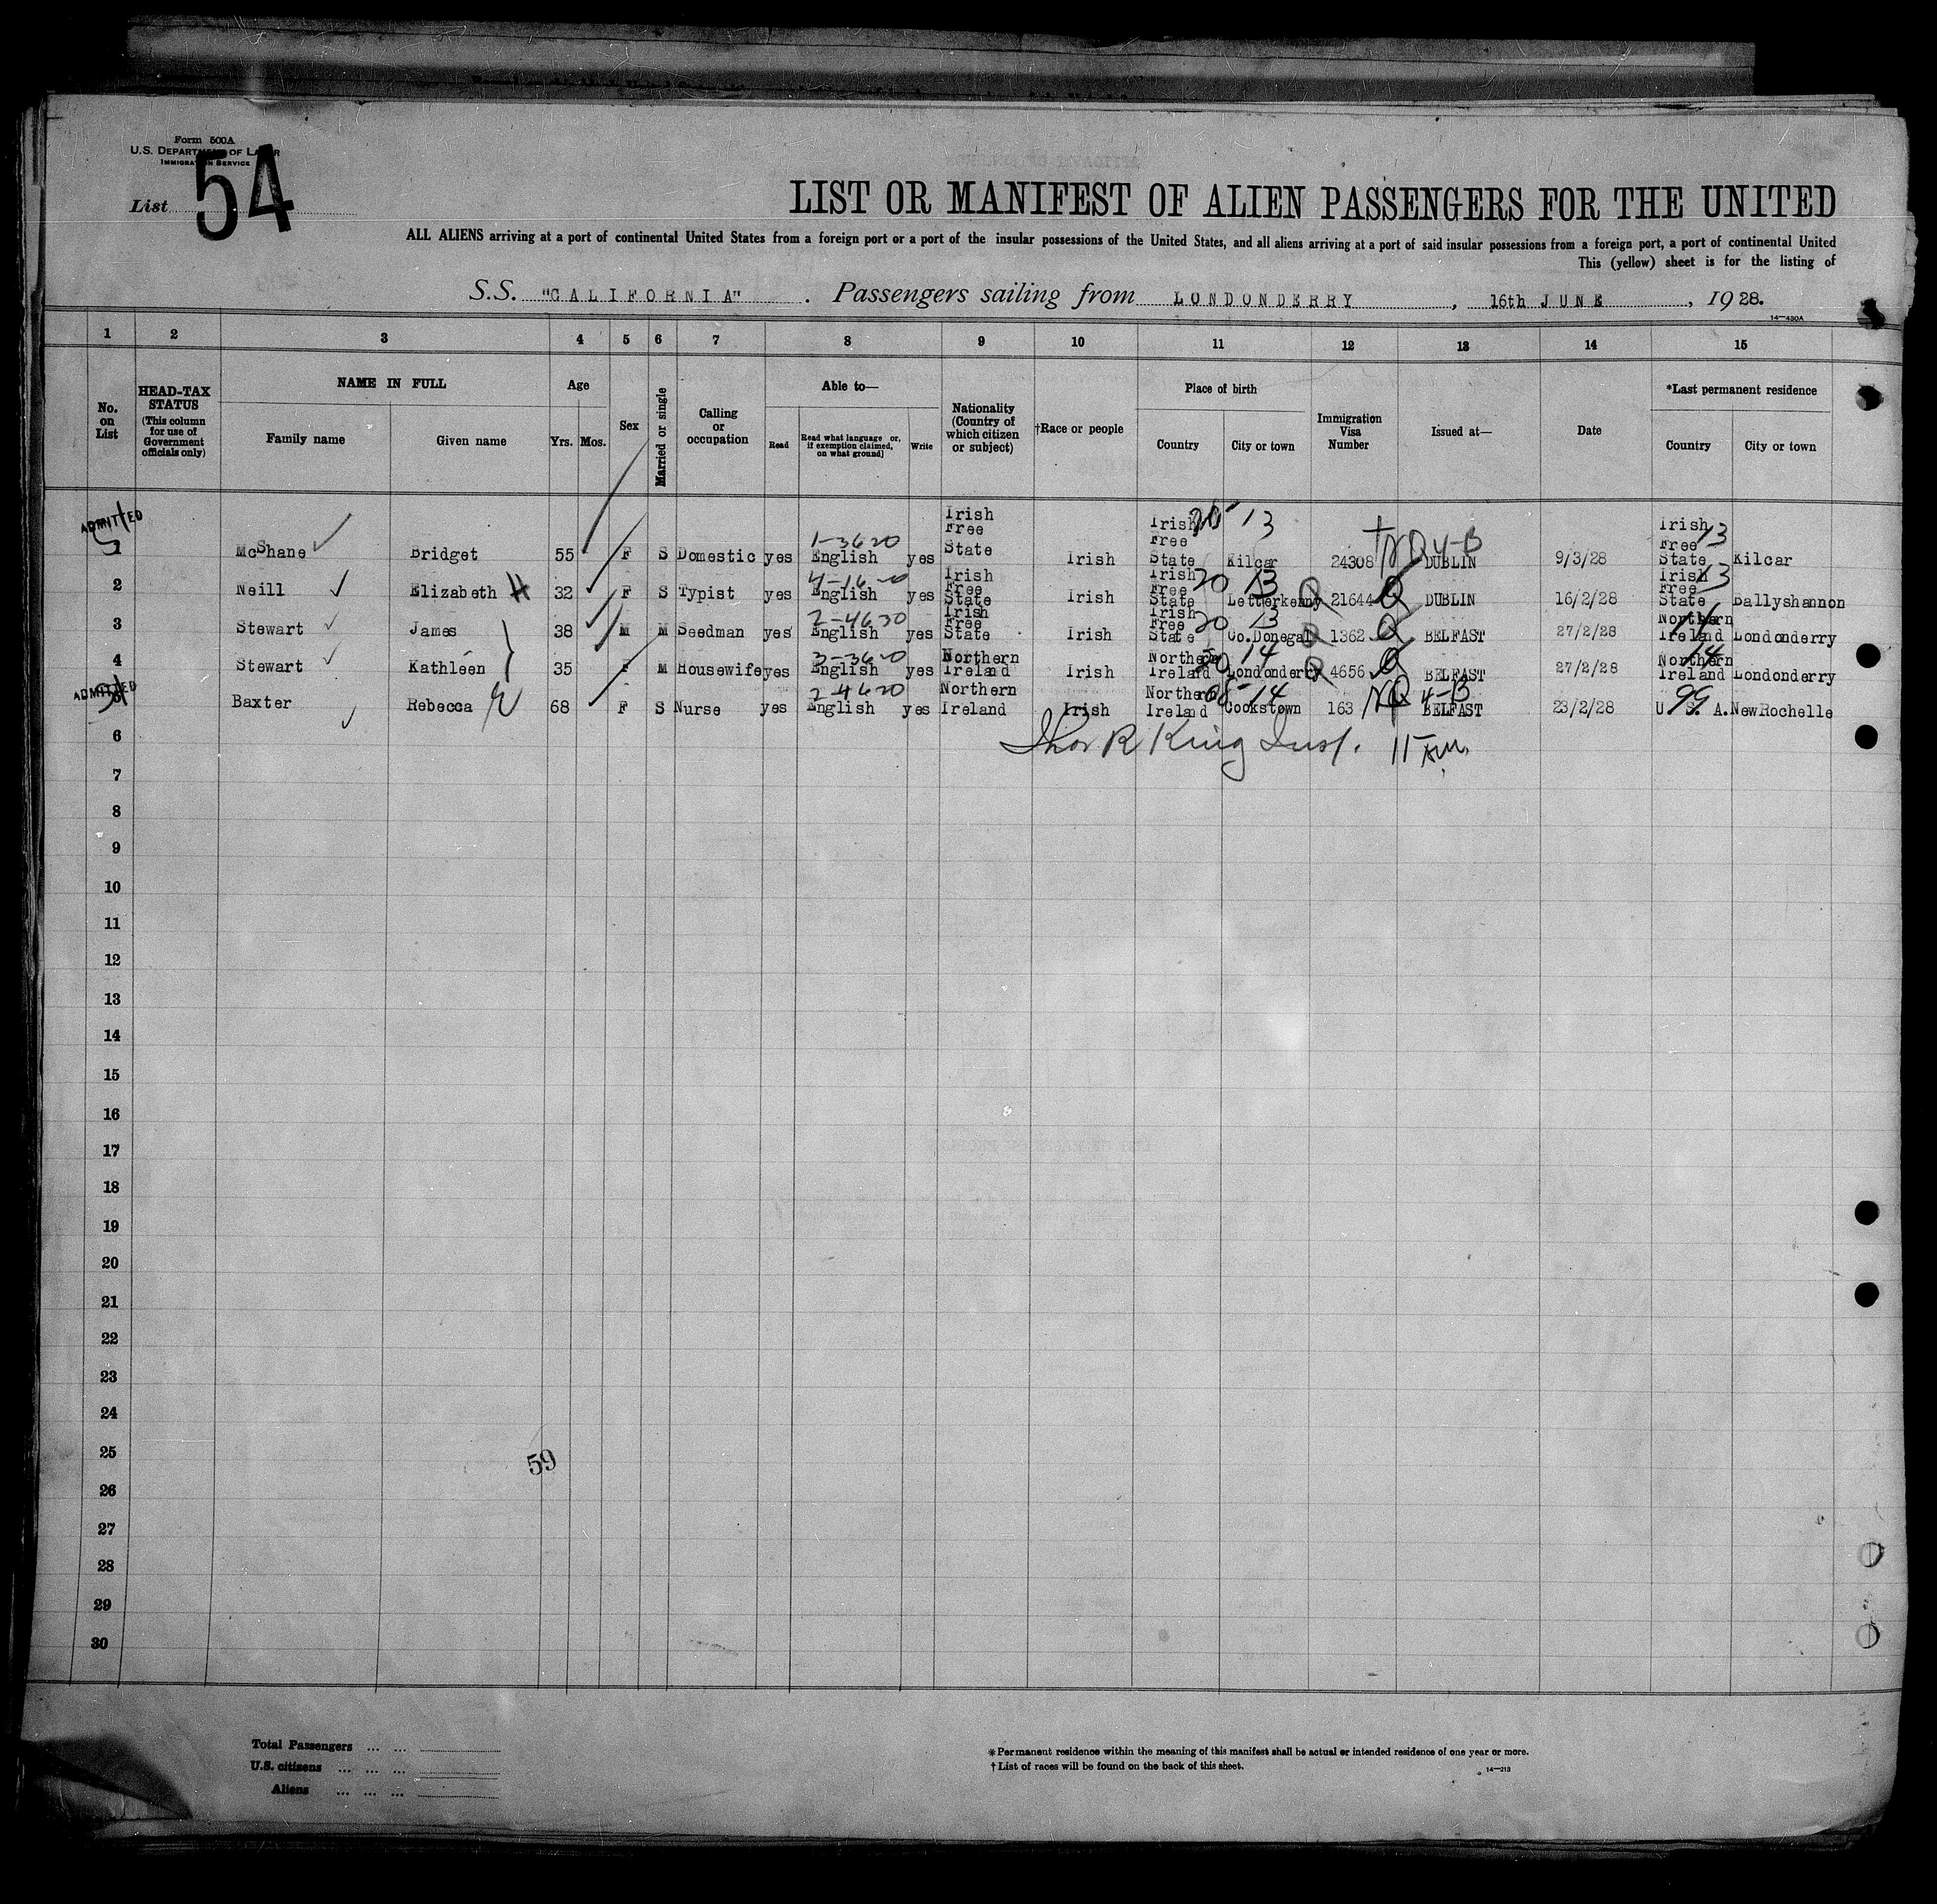 Form 500A
U.S. DEPARTMENT OF LABOR
IMMIGRATION SERVICE
List 54
LIST OR MANIFEST OF ALIEN PASSENGERS FOR THE UNITED
ALL ALIENS arriving at a port of continental United States from a foreign port or a port of the insular possessions of the United States, and all aliens arriving at a port of said insular possessions from a foreign port, a port of continental United
This (yellow) sheet is for the listing of
S.S. "CALIFORNIA" . Passengers sailing from LONDONDERRY , 16th JUNE , 1928.
14—430A
1 2 3 4 5 6 7 8 9 10 11 12 13 14 15
No. on List
HEAD-TAX STATUS (This column for use of Government officials only)
NAME IN FULL
Family name Given name
Age
Yrs. Mos.
Sex
Married or single
Calling or occupation
Able to—
Read Read what language or, if exemption claimed, on what ground] Write
Nationality (Country of which citizen or subject)
†Race or people
Place of birth
Country City or town
Immigration Visa Number
Issued at—
Date
*Last permanent residence
Country City or town
ADMITTED
1 McShane Bridget 55 F S Domestic yes 1-3620 English yes Irish Free State Irish Irish Free State 13 Kilcar 24308 NQ 4-B DUBLIN 9/3/28 Irish Free State 13 Kilcar
2 Neill Elizabeth H 32 F S Typist yes English yes Irish Free State Irish Irish Free State 20 13 Letterkenny Q 21644 Q DUBLIN 16/2/28 Irish Free State 13 Ballyshannon
3 Stewart James 38 M M Seedman yes 2-4630 English yes Irish Free State Irish Irish Free State 20 13 Co.Donegal 1362 Q BELFAST 27/2/28 Northern Ireland 14 Londonderry
4 Stewart Kathleen 35 F M Housewife yes 3-3620 English yes Northern Ireland Irish Northern Ireland 14 Londonderry Q 4656 Q BELFAST 27/2/28 Northern Ireland 14 Londonderry
ADMITTED
Baxter Rebecca 68 F S Nurse yes 2-4620 English yes Northern Ireland Irish Northern Ireland 14 Cookstown 163 NQ 4-B BELFAST 23/2/28 U. S. A. 99 New Rochelle
6 Thos R King Insp. 11 AM.
7
8
9
10
11
12
13
14
15
16
17
18
19
20
21
22
23
24
25
59
26
27
28
29
30
Total Passengers ... ...
U.S. citizens ... ... ...
Aliens ... ... ...
*Permanent residence within the meaning of this manifest shall be actual or intended residence of one year or more.
†List of races will be found on the back of this sheet.
14—213